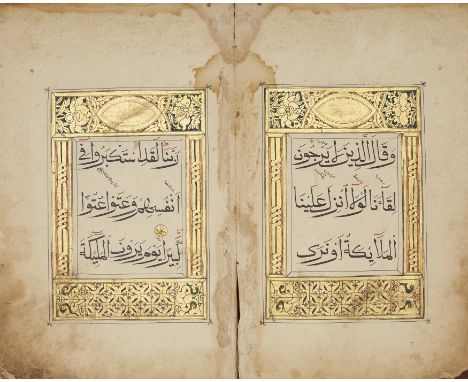 وقال الذين لا يرجون
لقاءنا لولا أنزل علينا
الملايكة أو نرى
ربنا لقد استكبروا في
أنفسهم وعتوا عتوا
كبيرا يوم يرون الملىكة